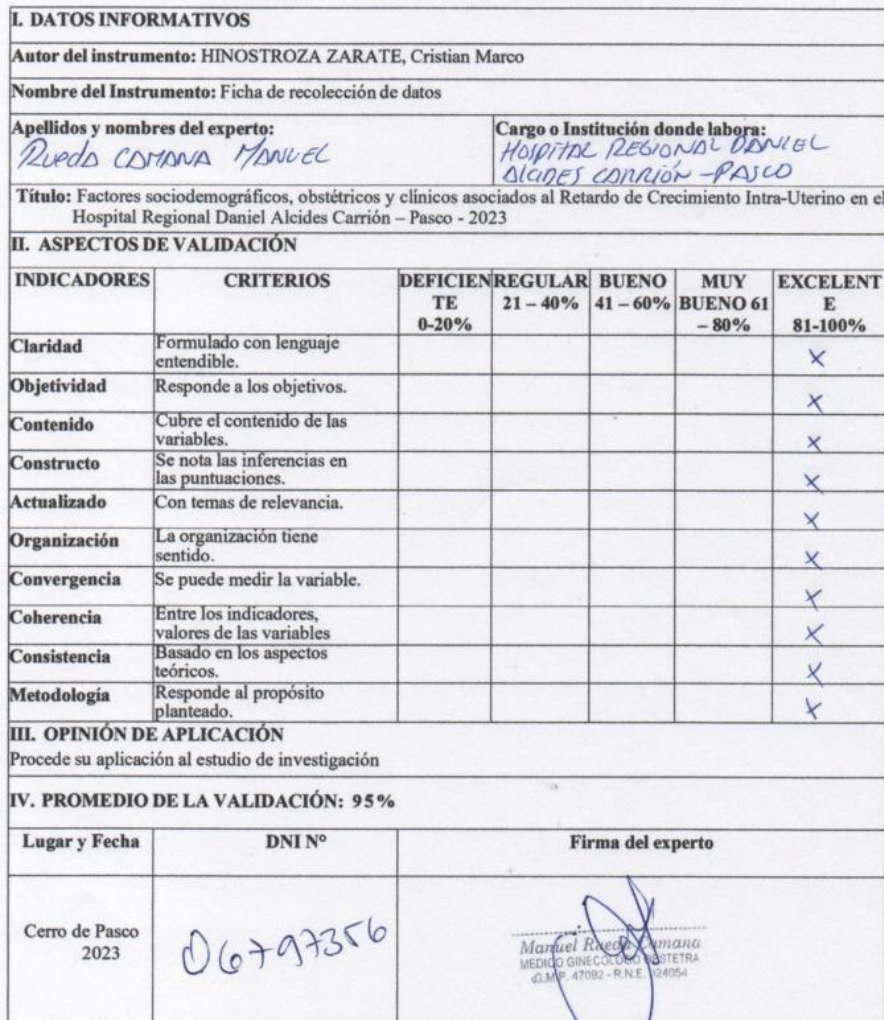 I. DATOS INFORMATIVOS
Autor del instrumento: HINOSTROZA ZARATE, Cristian Marco
Nombre del Instrumento: Ficha de recolección de datos
Apellidos y nombres del experto:
Rueda CAMANA MANUEL
Cargo o Institución donde labora:
HOSPITAL REGIONAL DANIEL
ALCIDES CARRIÓN - PASCO
Título: Factores sociodemográficos, obstétricos y clínicos asociados al Retardo de Crecimiento Intra-Uterino en el
Hospital Regional Daniel Alcides Carrión – Pasco - 2023
II. ASPECTOS DE VALIDACIÓN
INDICADORES CRITERIOS DEFICIEN REGULAR BUENO MUY EXCELENT
TE 21 – 40% 41 – 60% BUENO 61 E
0-20% – 80% 81-100%
Claridad Formulado con lenguaje
entendible. X
Objetividad Responde a los objetivos. X
Contenido Cubre el contenido de las
variables. X
Constructo Se nota las inferencias en
las puntuaciones. X
Actualizado Con temas de relevancia. X
Organización La organización tiene
sentido. X
Convergencia Se puede medir la variable. X
Coherencia Entre los indicadores,
valores de las variables X
Consistencia Basado en los aspectos
teóricos. X
Metodología Responde al propósito
planteado. X
III. OPINIÓN DE APLICACIÓN
Procede su aplicación al estudio de investigación
IV. PROMEDIO DE LA VALIDACIÓN: 95%
Lugar y Fecha DNI N° Firma del experto
Cerro de Pasco
2023
06797356
Manuel Rueda Camana
MEDICO GINECOLOGO OBSTETRA
C.M.P. 47092 - R.N.E. 024054